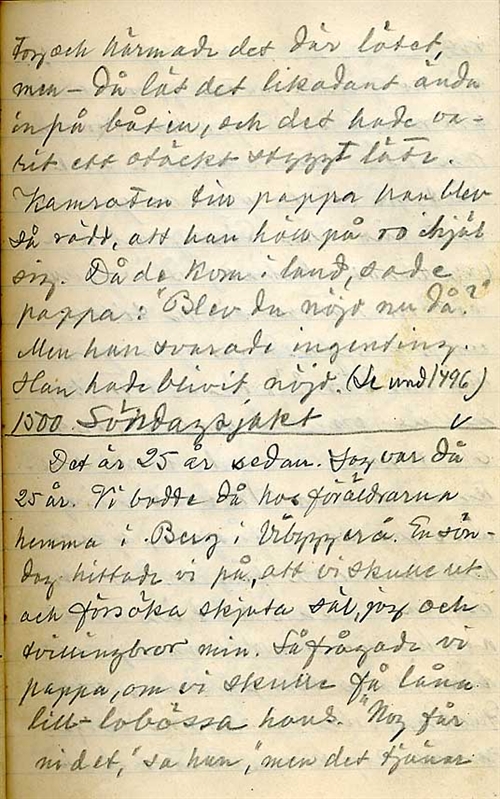 torg och härmade det där lätet,
men - då lät det likadant ända
inpå båten, och det hade va-
rit ett otäckt styggt läte.
Kamraten till pappa han blev
så rädd, att han höll på
sig. Då de kom i land, sade
pappa: "Blev du nöjd nu då?"
Men han svarade ingenting.
Han hade blivit nöjd. (Se und 1496)
1500 Söndagsjakt
Det är 25 år sedan. Jag var då
25 år. Vi bodde då hos föräldrarna
hemma i Berg i Vibyggerå. En sön-
dag hittade vi på, att vi skulle ut
och försöka skjuta säl, jag och
tvillingbror min. Så frågade vi
pappa, om vi skulle få låna
lill-lobössa hans. "Nog får
ni det," sa han, "men det tjänar